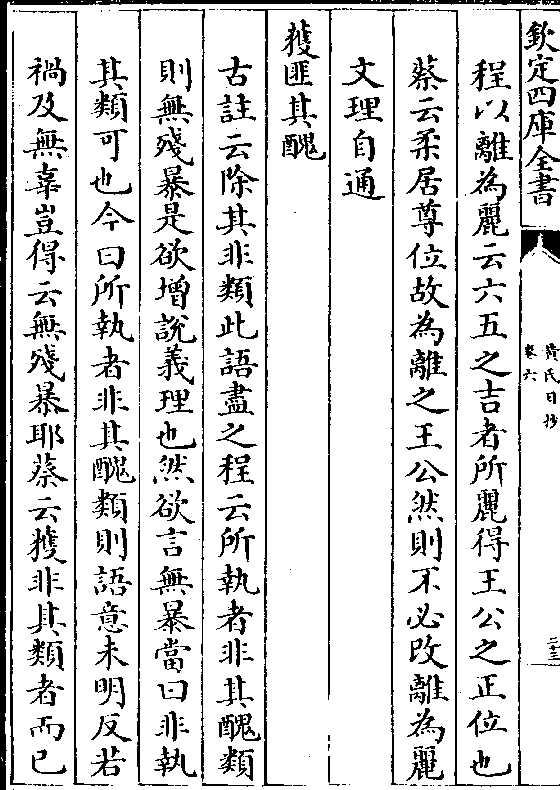 欽定四庫全書
黄氏日抄
卷六
二十三
程以離為麗云六五之吉者所麗得王公之正位也
蔡云柔居尊位故為離之王公然則不必改離為麗
文理自通
獲匪其醜
古註云除其非類此語盡之程云所執者非其醜類
則無殘暴是欲增說義理也然欲言無暴當曰非執
其類可也今曰所執者非其醜類則語意未明反若
禍及無辜豈得云無殘暴耶蔡云獲非其類者而已